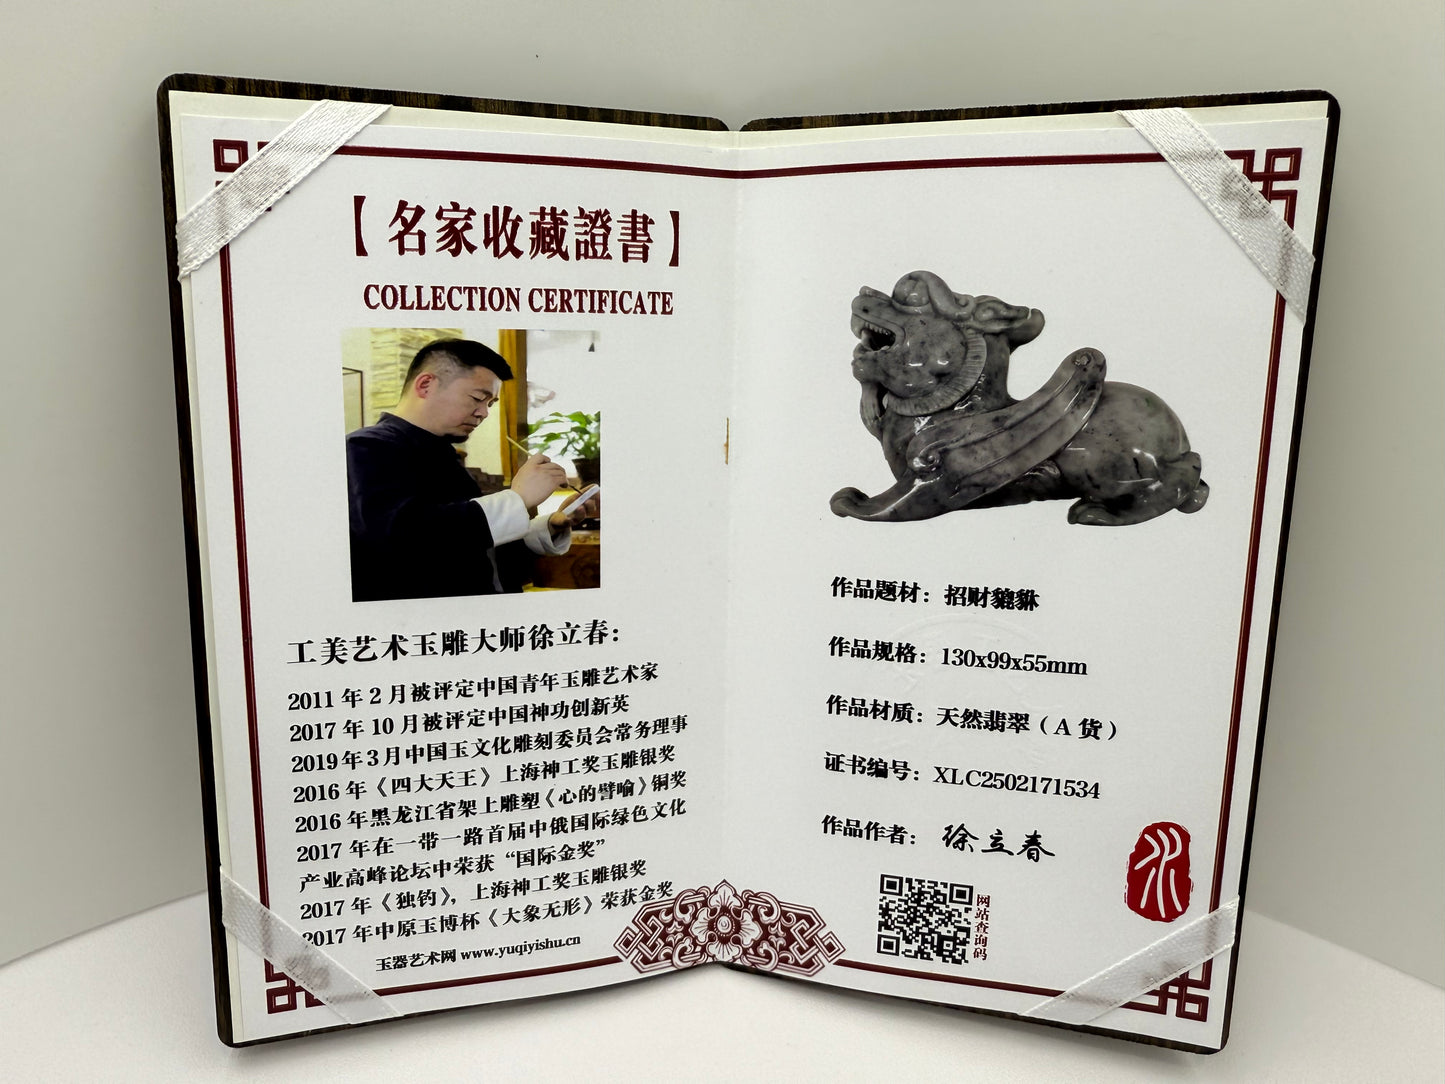 【名家收藏證書】
COLLECTION CERTIFICATE
工美艺术玉雕大师徐立春：
2011 年 2 月被评定中国青年玉雕艺术家
2017 年 10 月被评定中国神功创新英
2019 年 3 月中国玉文化雕刻委员会常务理事
2016 年《四大天王》上海神工奖玉雕银奖
2016 年黑龙江省架上雕塑《心的譬喻》铜奖
2017 年在一带一路首届中俄国际绿色文化
产业高峰论坛中荣获“国际金奖”
2017 年《独钓》，上海神工奖玉雕银奖
2017 年中原玉博杯《大象无形》荣获金奖
玉器艺术网 www.yuqiyishu.cn
作品题材：招财貔貅
作品规格：130x99x55mm
作品材质：天然翡翠（A 货）
证书编号：XLC2502171534
作品作者：徐立春
网站查询码